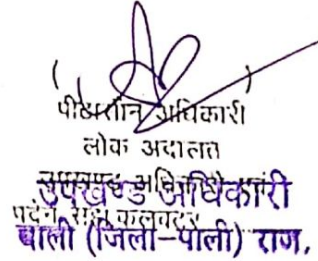 ( )
पीठासीन अधिकारी
लोक अदालत
उपखण्ड अधिकारी
पदेन सहा कलक्टर
बाली (जिला-पाली) राज.